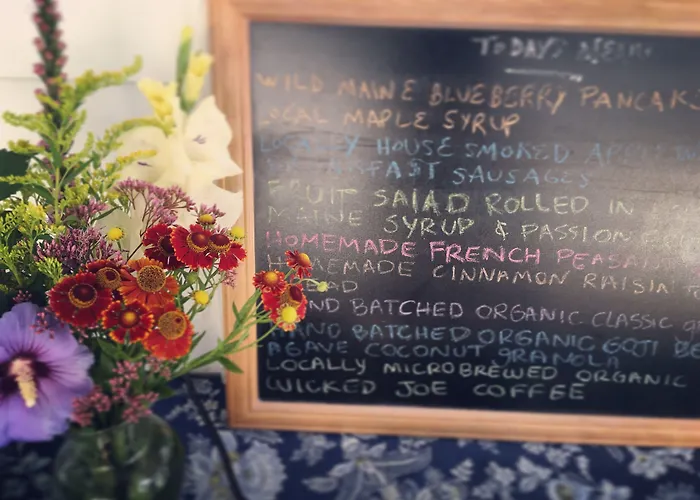 TODAY'S MENU
WILD MAINE BLUEBERRY PANCAK
LOCAL MAPLE SYRUP
LOCALLY HOUSE SMOKED APPLEW
BREAKFAST SAUSAGES
FRUIT SALAD ROLLED IN
MAINE SYRUP & PASSION
HOMEMADE FRENCH PEASA
HOMEMADE CINNAMON RAISIN
BREAD
HAND BATCHED ORGANIC CLASSIC G
HAND BATCHED ORGANIC GOJI BE
AGAVE COCONUT GRANOLA
LOCALLY MICROBREWED ORGANIC
WICKED JOE COFFEE